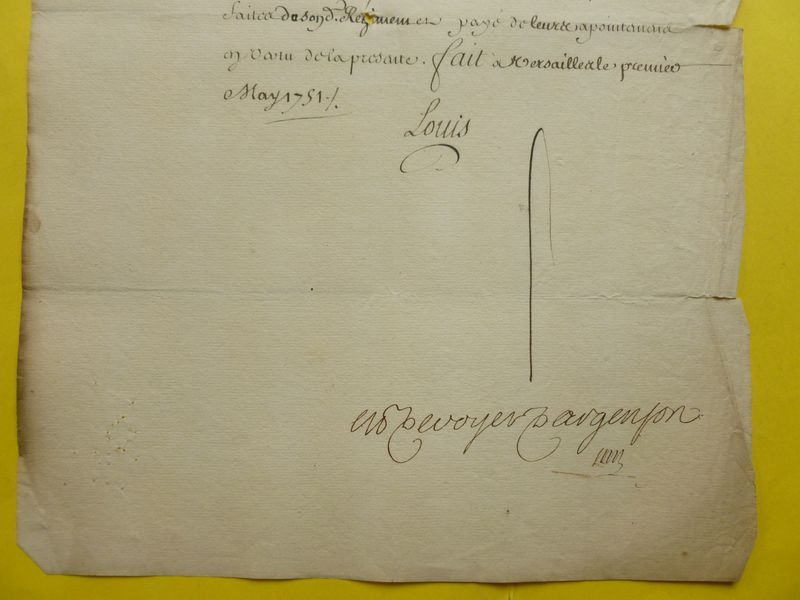 faites de son d. Regiment et payé de leurs apointemens
en vertu de la presente. fait a Versailles le premier
May 1751./.
Louis
M de Voyer D'argenson